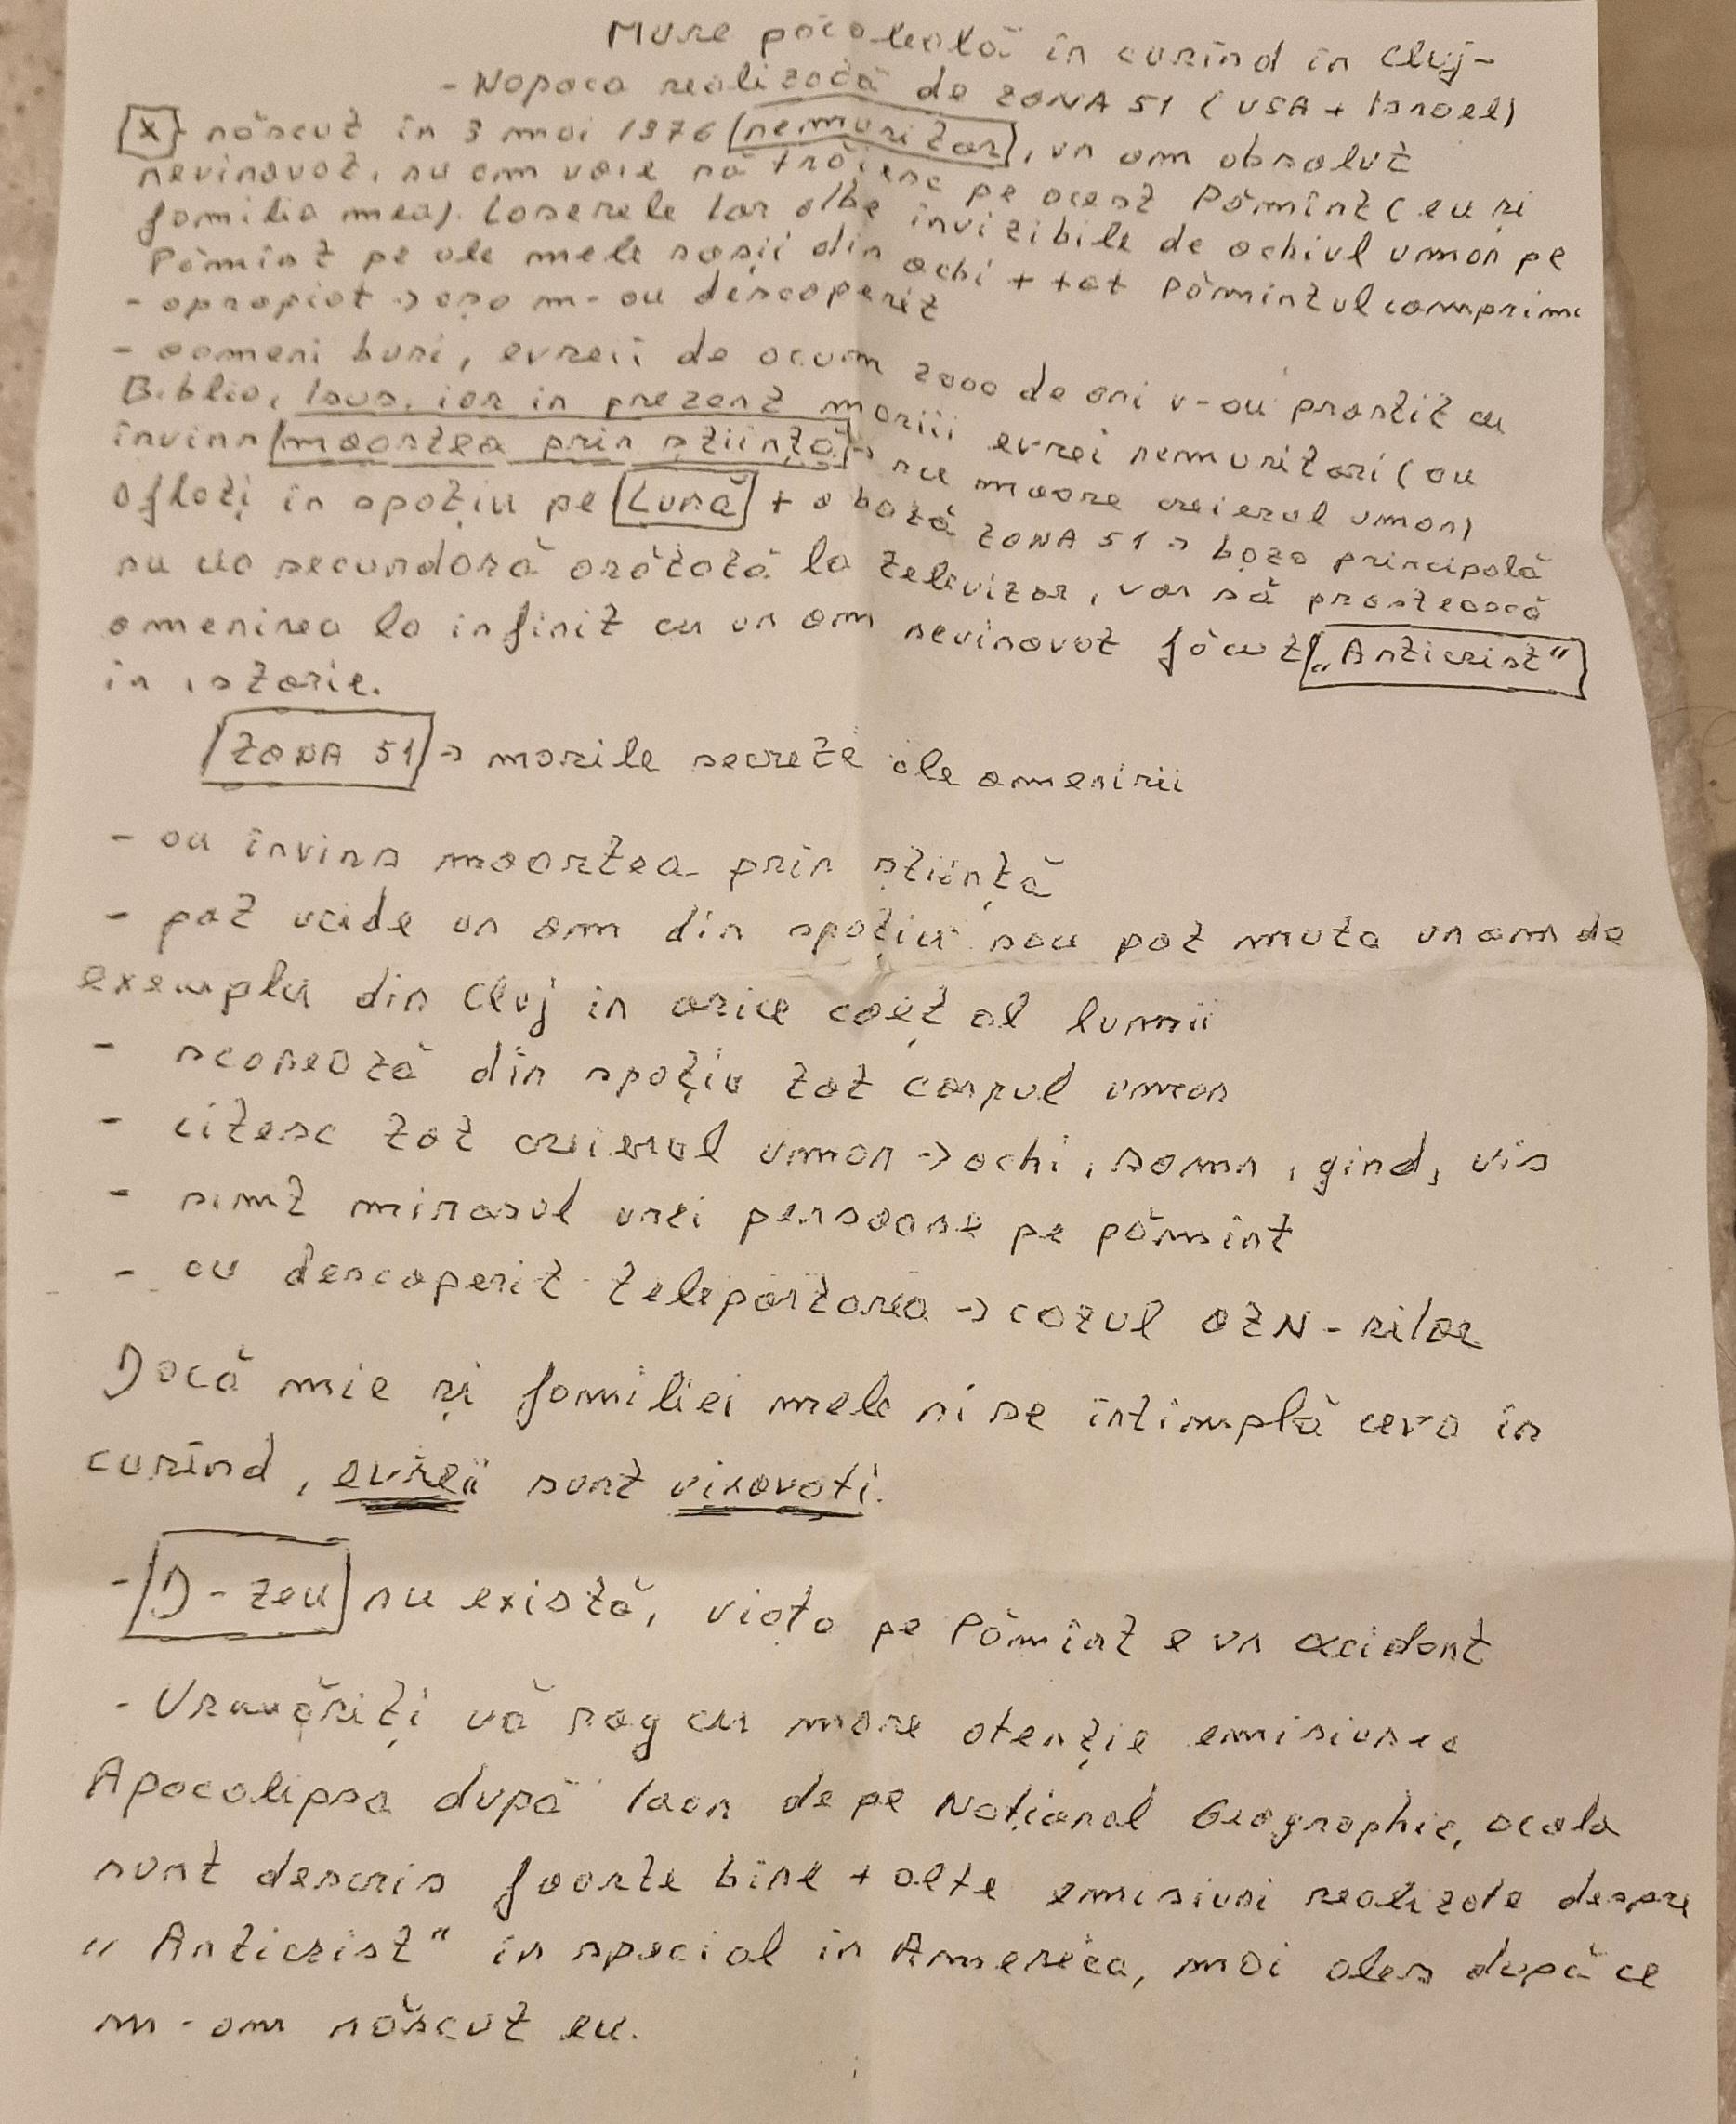 Mare păcăleală în curînd în Cluj-
-Napoca realizată de ZONA 51 (USA + Israel)
X născut în 3 mai 1976 (nemuritor), un om absolut
nevinovat, nu am voie să trăiesc pe acest Pămînt (eu și
familia mea). Laserele lor albe invizibile de ochiul uman pe
Pămînt pe ale mele sosii din ochi + tot Pămîntul comprim
- apropiat → așa m-au descoperit
- oameni buni, evreii de acum 2000 de ani v-au prostit cu
Biblia, Isus, iar in prezent marii evrei nemuritori (au
învins moartea prin știință → nu moare creierul uman)
aflați în spațiu pe Lună + o bază ZONA 51 → baza principală
nu cea secundară arătată la televizor, vor să prostească
omenirea la infinit cu un om nevinovat făcut „Anticrist"
în istorie.
ZONA 51 → marile secrete ale omenirii
- au învins moartea prin știință
- pot ucide un om din spațiu sau pot muta un om de
exemplu din Cluj in orice colț al lumii
- scanează din spațiu tot corpul uman
- citesc tot creierul uman → ochi, somn, gind, vis
- simt mirosul unei persoane pe pămînt
- au descoperit teleportarea → cazul OZN-rilor
Dacă mie și familiei mele ni se întîmplă ceva în
curînd, evreii sunt vinovati.
- D-zeu nu există, viața pe Pămînt e un accident
- Urmăriți vă rog cu mare atenție emisiunea
Apocalipsa după Ioan de pe Național Geographic, acolo
sunt descris foarte bine + alte emisiuni realizate despre
„Anticrist" in special in America, mai ales după ce
m-am născut eu.